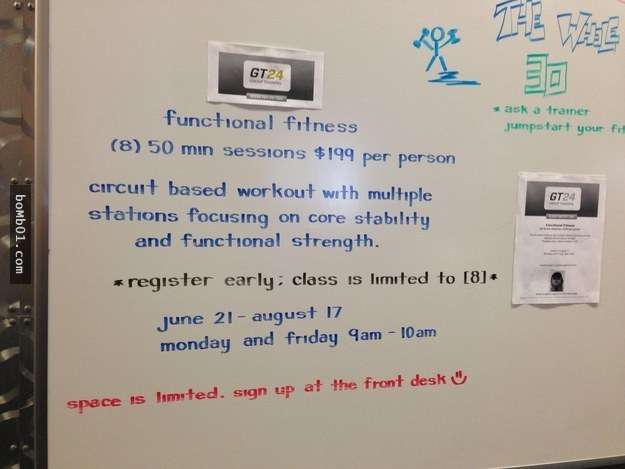 GT24
GROUP TRAINING
functional fitness
(8) 50 min sessions $199 per person
circuit based workout with multiple
stations focusing on core stability
and functional strength.
*register early; class is limited to [8]*
june 21 - august 17
monday and friday 9am - 10am
space is limited. sign up at the front desk
THE WHOLE
30
* ask a trainer
jumpstart your fit
GT24
bomb01.com